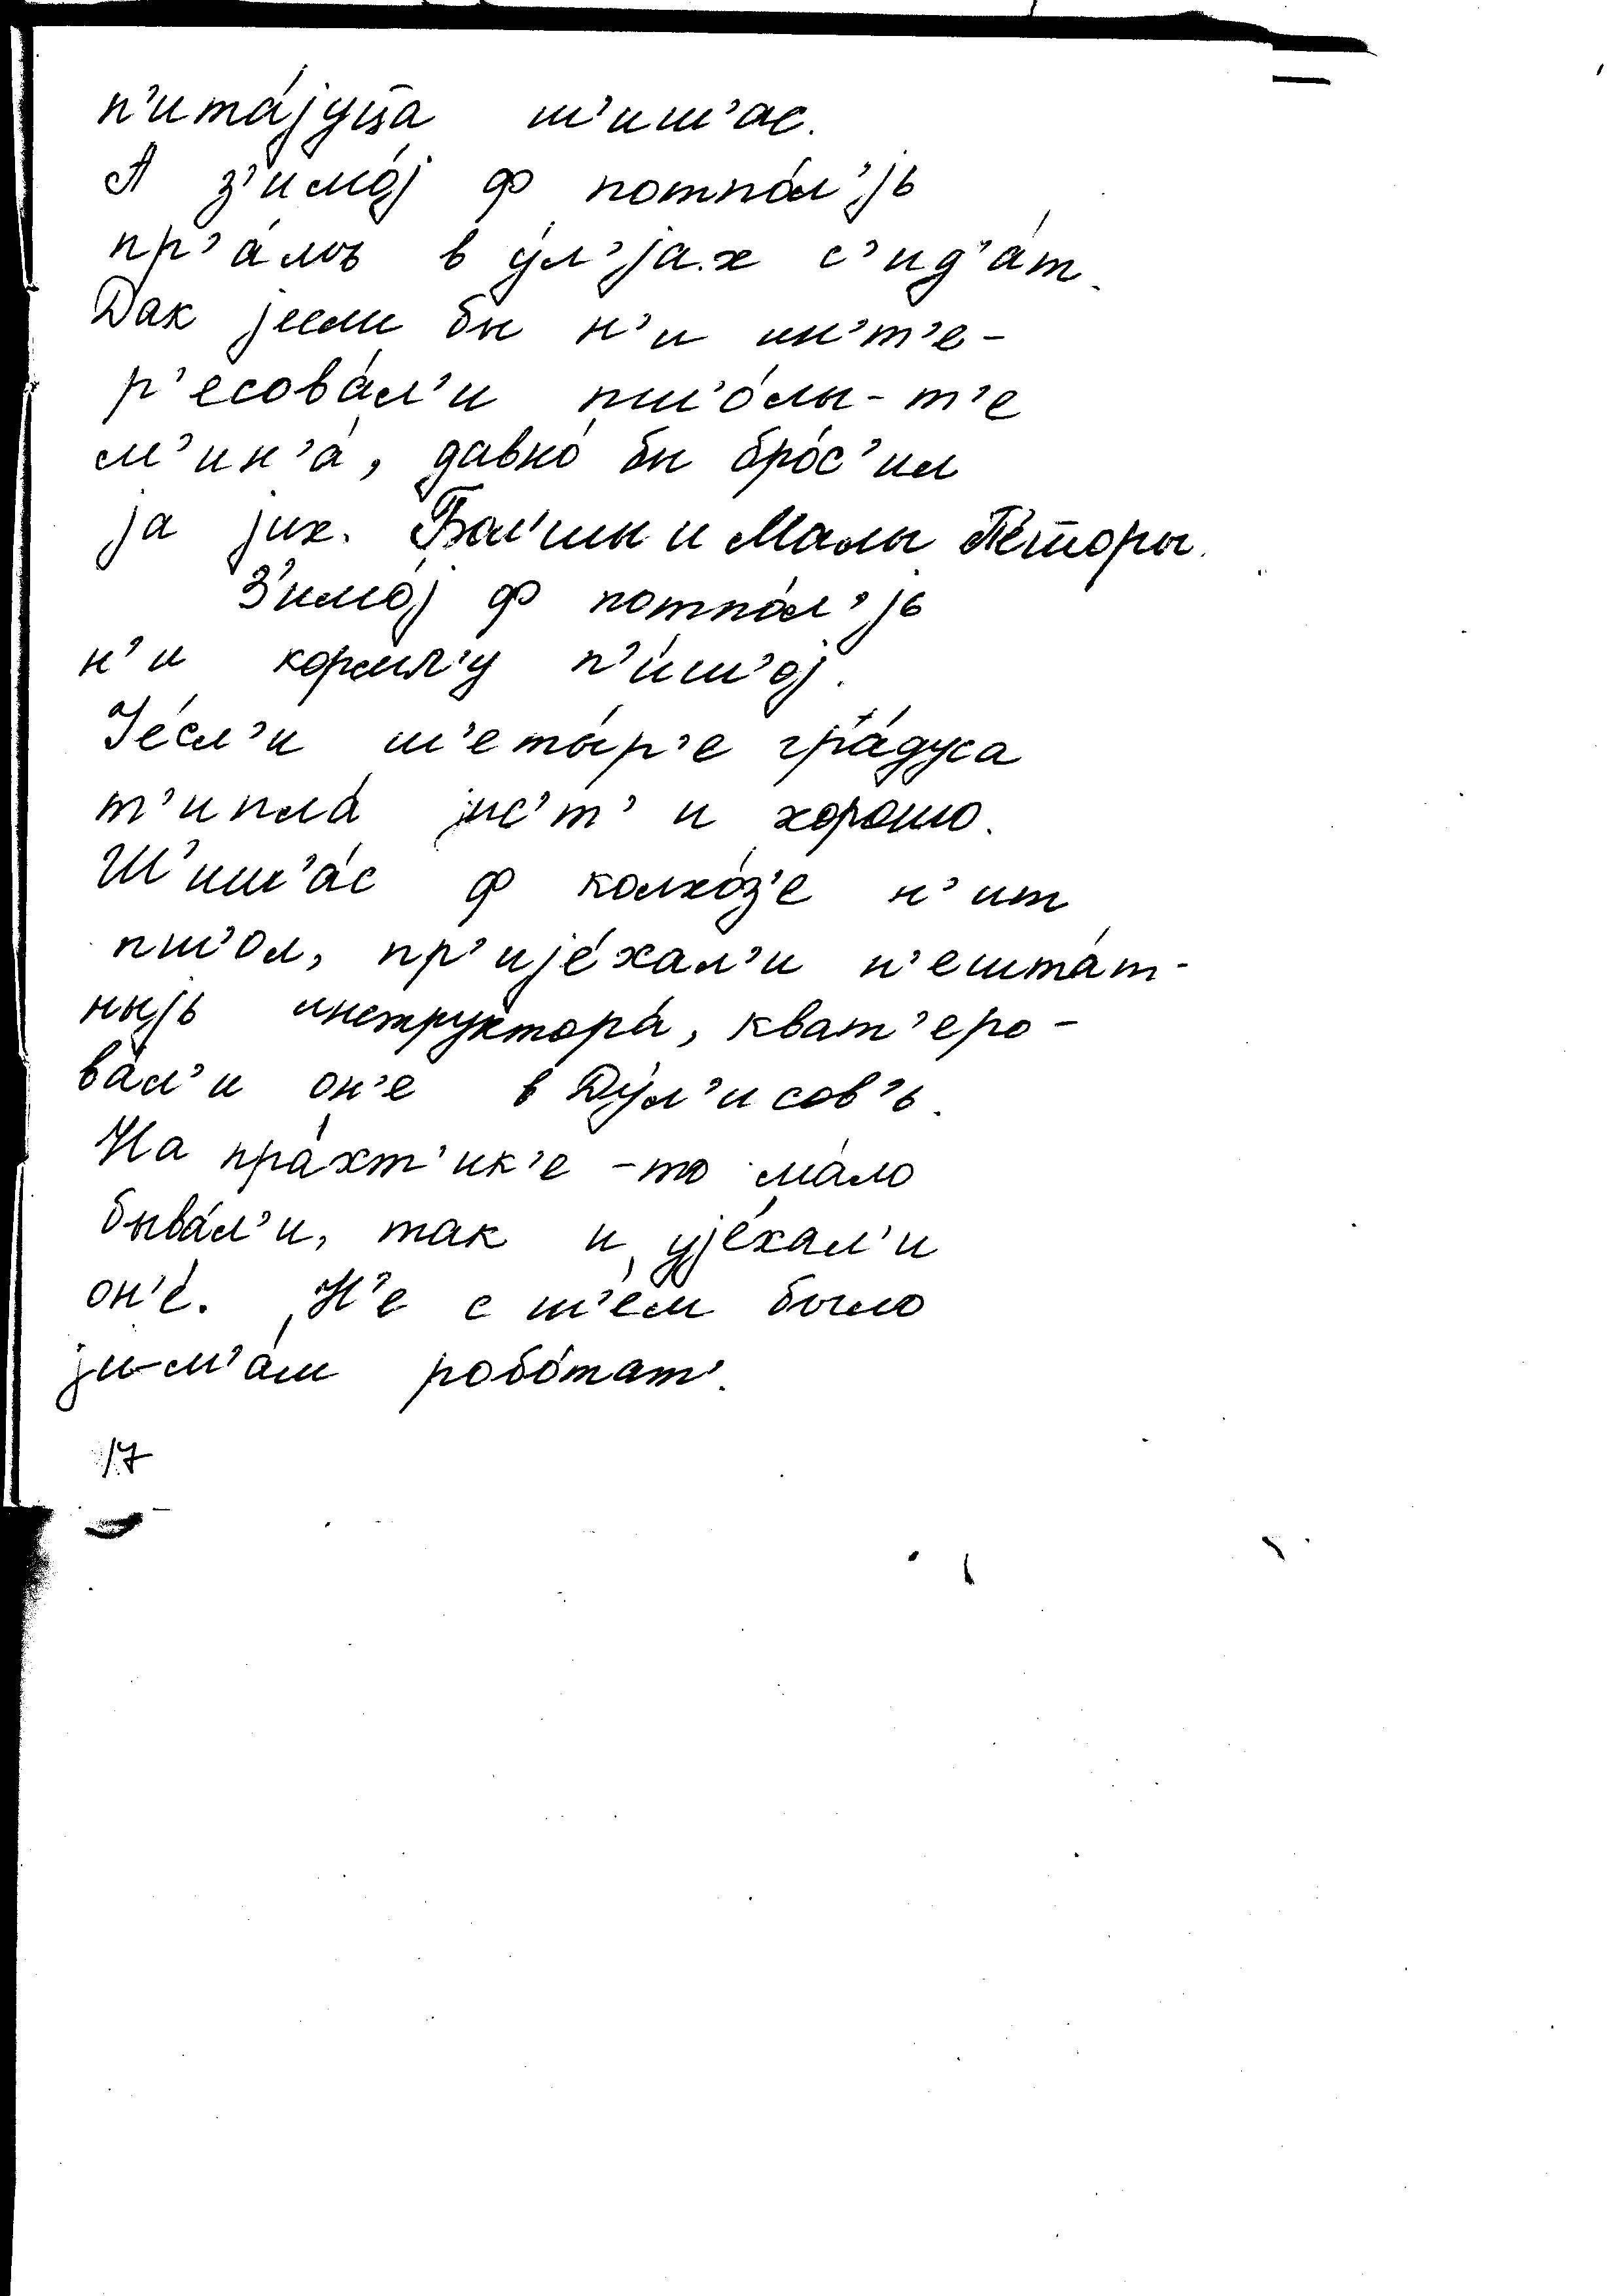 п’ита́јуц̄а ш’иш’ас.
А з’имо́ј ф потпо́л’јь
пр’а́мъ в у́л’јах с’ид’а́т.
Дак јесли бы н’и ин’т’е-
р’есова́л’и пш’о́лы-т’е
м’ин’а́, давно́ бы бро́с’ил
ја јих. Бол’шы и Малы Пе́торы.
З’имо́ј ф потпо́л’јь
н’и кормл’у п’и́ш’ој.
Је́сл’и ш’еты́р’е гра́дуса
т’ипла́ јис’т’ и хорошо.
Ш’иш’а́с ф колхо́з’е н’ит
пш’ол, пр’ије́хал’и н’ешта́т-
ныјь инструктора́, кват’еро-
ва́л’и он’е в Ду́л’исов’ь.
На пра́хт’ик’е -то ма́ло
быва́л’и, так и ује́хал’и
он’е́. Н’е с ш’е́м было
ји-м’а́м робо́тат’.
17